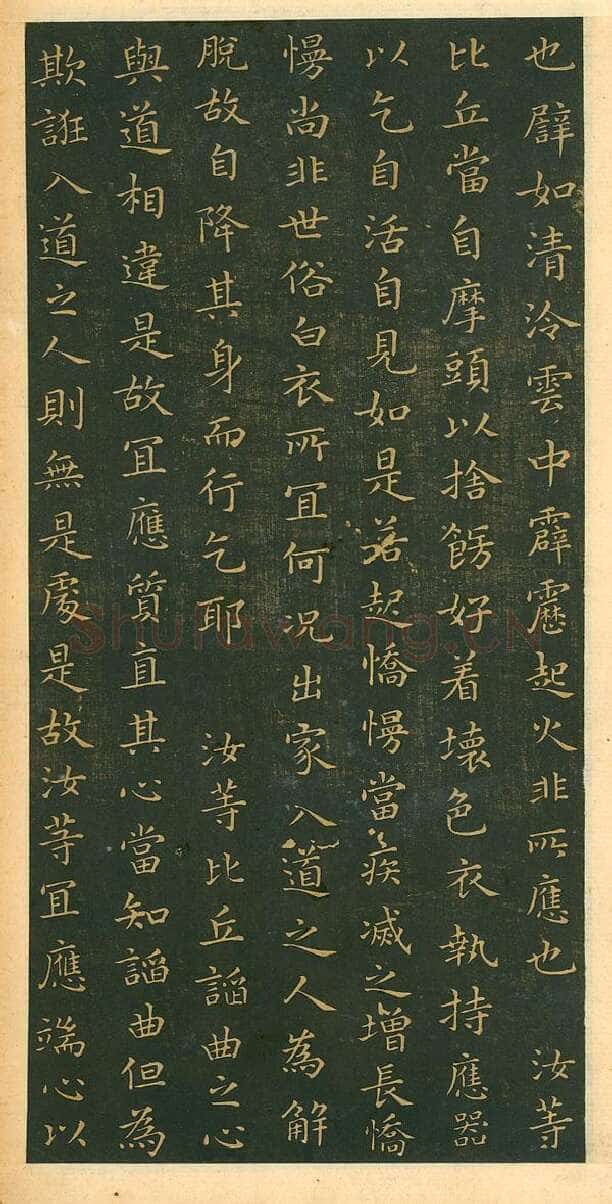 也譬如清泠雲中霹靂起火非所應也 汝等
比丘當自摩頭以捨餝好着壞色衣執持應器
以乞自活自見如是若起憍慢當疾滅之增長憍
慢尚非世俗白衣所冝何况出家入道之人為解
脫故自降其身而行乞耶 汝等比丘諂曲之心
與道相違是故冝應質直其心當知諂曲但為
欺誑入道之人則無是處是故汝等冝應端心以
Shufawang.CN